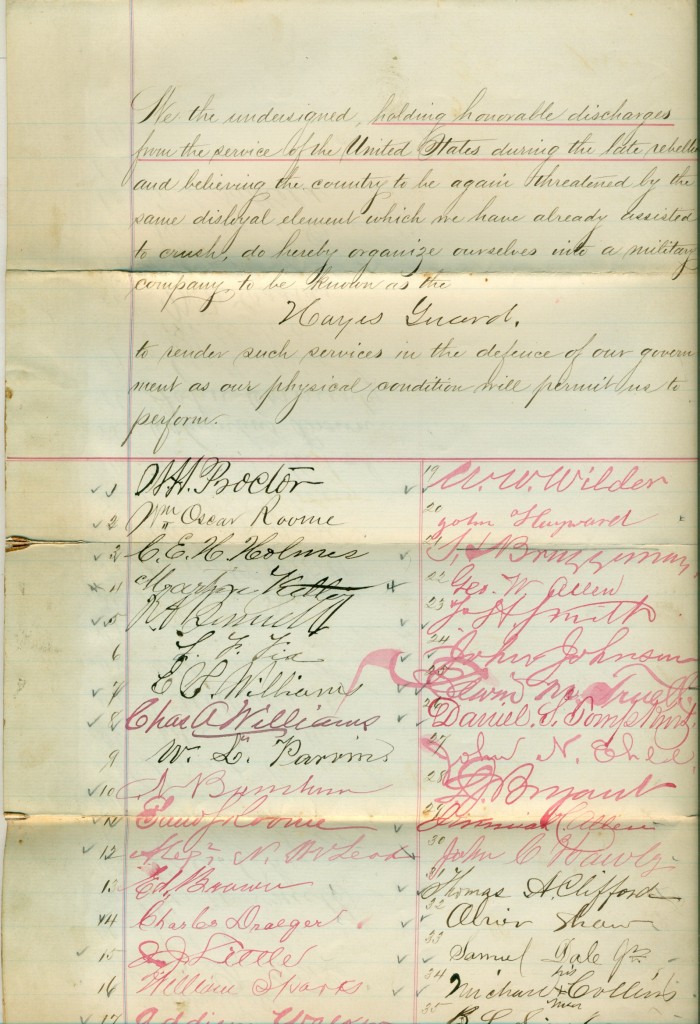 We the undersigned, holding honorable discharges
from the service of the United States during the late rebelli
and believing the country to be again threatened by the
same disloyal element which we have already assisted
to crush, do hereby organize ourselves into a military
company to be known as the
Hayes Guard.
to render such services in the defence of our govern
ment as our physical condition will permit us to
perform.
1 W.H. Proctor
2 Wm Oscar Roome
3 C. E. H. Holmes
4 Martin Kelly
5 Bennett
6 F. F.
7 E. F. Williams
8 Chas A Williams
9 W. L. Parvins
10
11 Roome
12 Alex. N. McLeod
13 Ed. Brown
14 Charles Draeger
15 J. Little
16 William Sparks
17 Addison
19 W. W. Wilder
20 John Hayward
21
22 Geo. W. Allen
23 J. H. Smith
24 John Johnson
25
26 Daniel S. Tompkins
27 John N.
28 Bryant
29 Allen
30 John C Hawly
31 Thomas A. Clifford
32 Oliver Shaw
33 Samuel Dale
34 Michael his x mark Collins
35